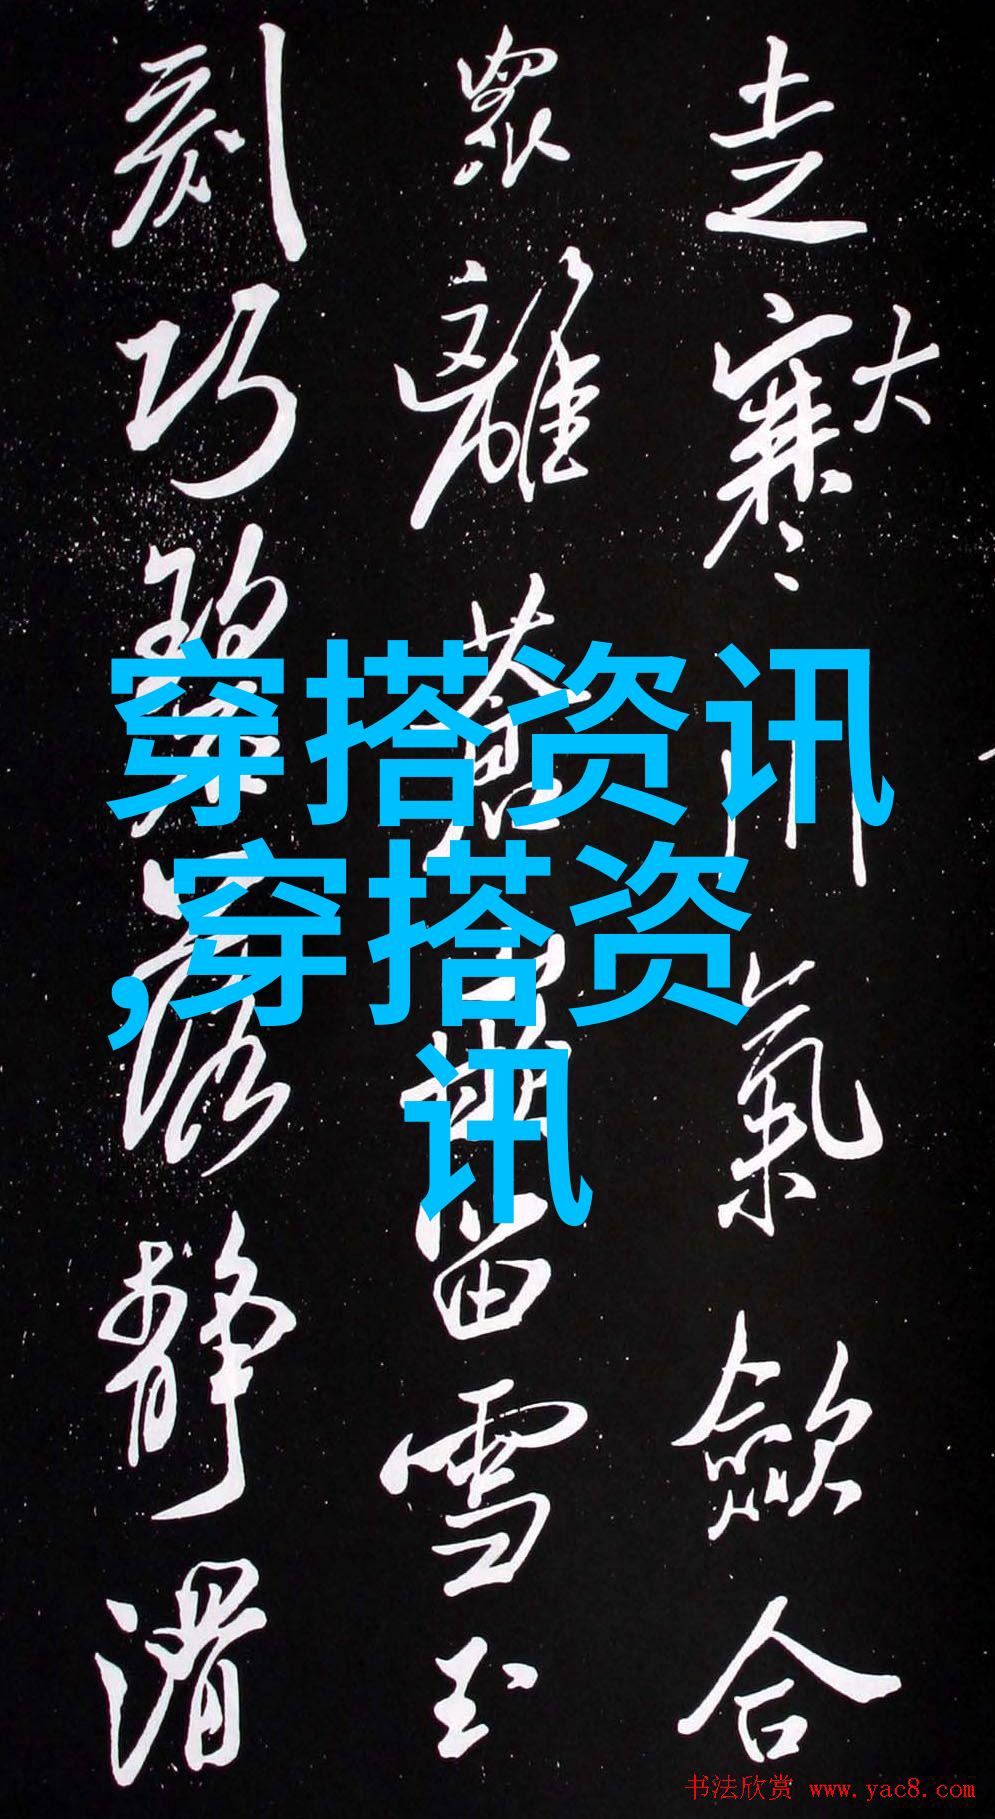 走寒大川氣歛合
眾離蒼留雪玉
刻巧落靜
穿搭资讯
,穿搭资
讯
书法欣赏 www.yac8.com